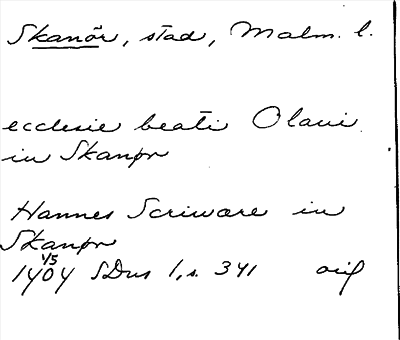 Skanör, stad, Malm. l.
ecclesie beati Olaui
in Skanør
Hannes Scriware in
Skanør
1/5
1404 SDns 1, s. 341 orig